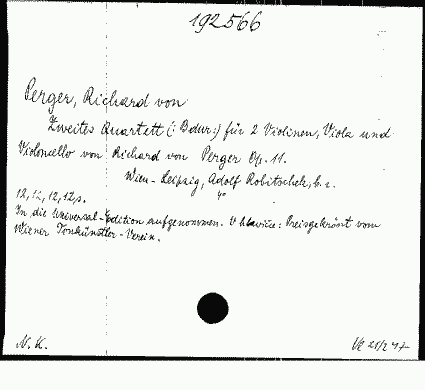 192566
Perger, Richard von
Zweites Quartett (: Bdur :) für 2 Violinen, Viola und
Violoncello von Richard von Perger Op. 11.
Wien - Leipzig, Adolf Robitschek, b. r.
4°
12, 12, 12, 12, s.
In die Universal-Edition aufgenommen. V hlavičce: Preisgekrönt vom
Wiener Tonkünstler-Verein.
N. K.